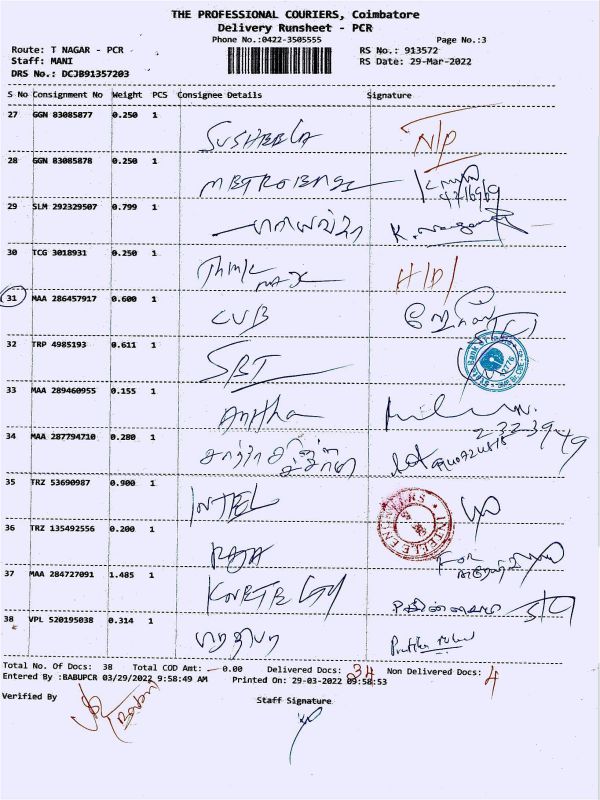 THE PROFESSIONAL COURIERS, Coimbatore
Delivery Runsheet - PCR
Phone No.:0422-3505555 Page No.:3
Route: T NAGAR - PCR RS No.: 913572
Staff: MANI RS Date: 29-Mar-2022
DRS No.: DCJB91357203
S No Consignment No Weight PCS Consignee Details Signature
27 GGN 83085877 0.250 1
SUSHEELA N/P
28 GGN 83085878 0.250 1
METROBANZ
29 SLM 292329507 0.799 1
30 TCG 3018931 0.250 1
Think H/D/
31 MAA 286457917 0.600 1
CUB
32 TRP 4985193 0.611 1
SBI
33 MAA 289460955 0.155 1
Anitha
34 MAA 287794710 0.280 1
35 TRZ 53690987 0.900 1
INTEL
36 TRZ 135492556 0.200 1
RAJA FOR
37 MAA 284727091 1.485 1
38 VPL 520195038 0.314 1
Total No. Of Docs: 38 Total COD Amt: 0.00 Delivered Docs: 34 Non Delivered Docs: 4
Entered By :BABUPCR 03/29/2022 9:58:49 AM Printed On: 29-03-2022 09:58:53
Verified By Staff Signature